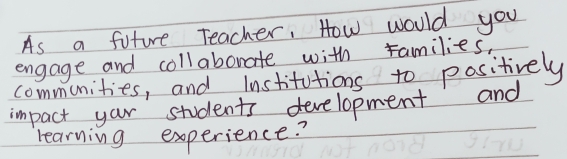 As a future Teacher, How would you
engage and collaborate with families,
communities, and Institutions to positively
impact your students development and
learning experience?